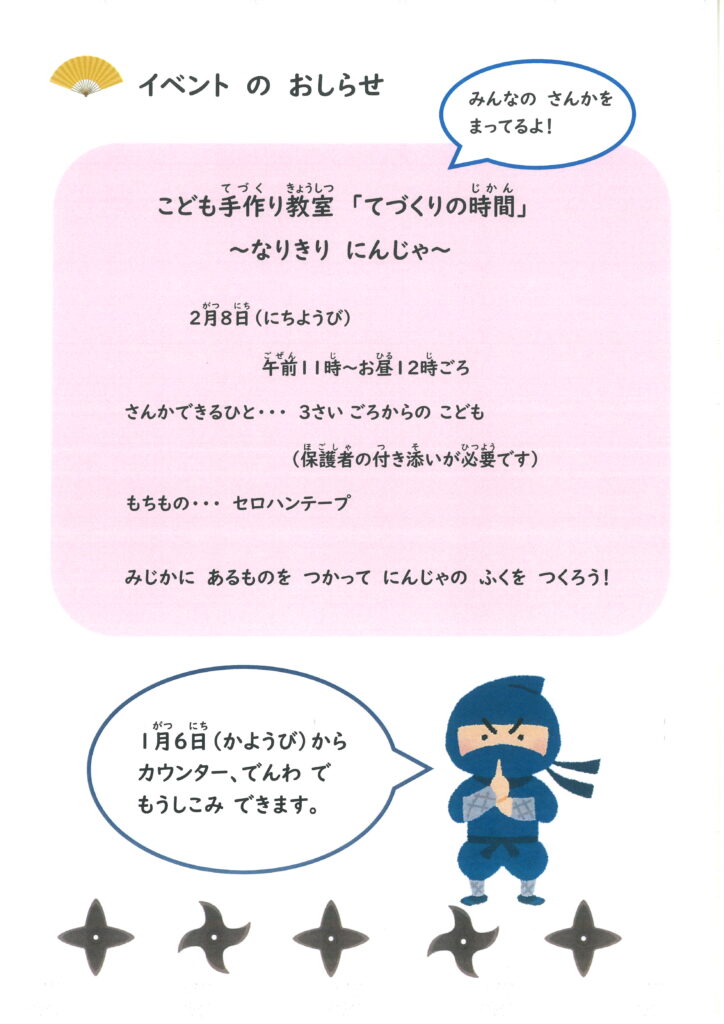 イベント の おしらせ
みんなの さんかを
まってるよ!
こども手作り教室「てづくりの時間」
～なりきり にんじゃ～
2月8日(にちようび)
午前11時～お昼12時ごろ
さんかできるひと・・・ 3さい ごろからの こども
(保護者の付き添いが必要です)
もちもの・・・ セロハンテープ
みじかに あるものを つかって にんじゃの ふくを つくろう!
1月6日(かようび)から
カウンター、でんわ で
もうしこみ できます。